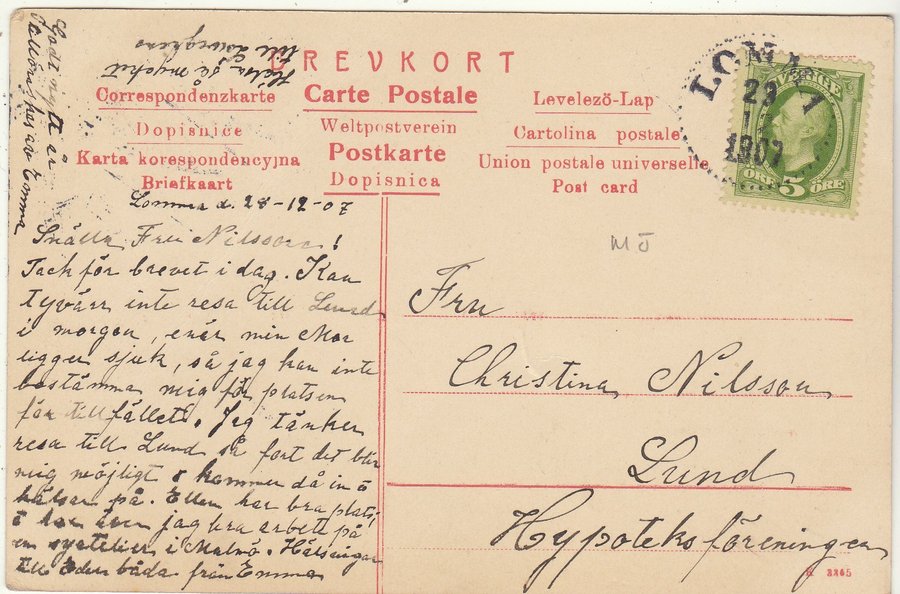 BREVKORT
Correspondenzkarte
Carte Postale
Levelező-Lap
Dopisnice
Weltpostverein
Cartolina postale
Karta korespondencyjna
Postkarte
Union postale universelle
Briefkaart
Dopisnica
Post card
LOMMA
29
12
1907
SVERIGE
ÖRE 5 ÖRE
MÖ
Lomma d. 28-12-07
Snälla Fru Nilsson!
Tack för brevet i dag. Kan
tyvärr inte resa till Lund
i morgon, enär min Mor
ligger sjuk, så jag kan inte
bestämma mig för platsen
för tillfället. Jag tänker
resa till Lund så fort det blir
mig möjligt o kommer då in o
hälsar på. Ellen har bra plats,
o har även jag bra arbete på
en syatelier i Malmö. Hälsningar
till Eder båda från Emma
Godt nytt år
tillönskes av Emma
Hälsa så mycket
till
Fru
Christina Nilsson
Lund
Hypoteksföreningen
3365